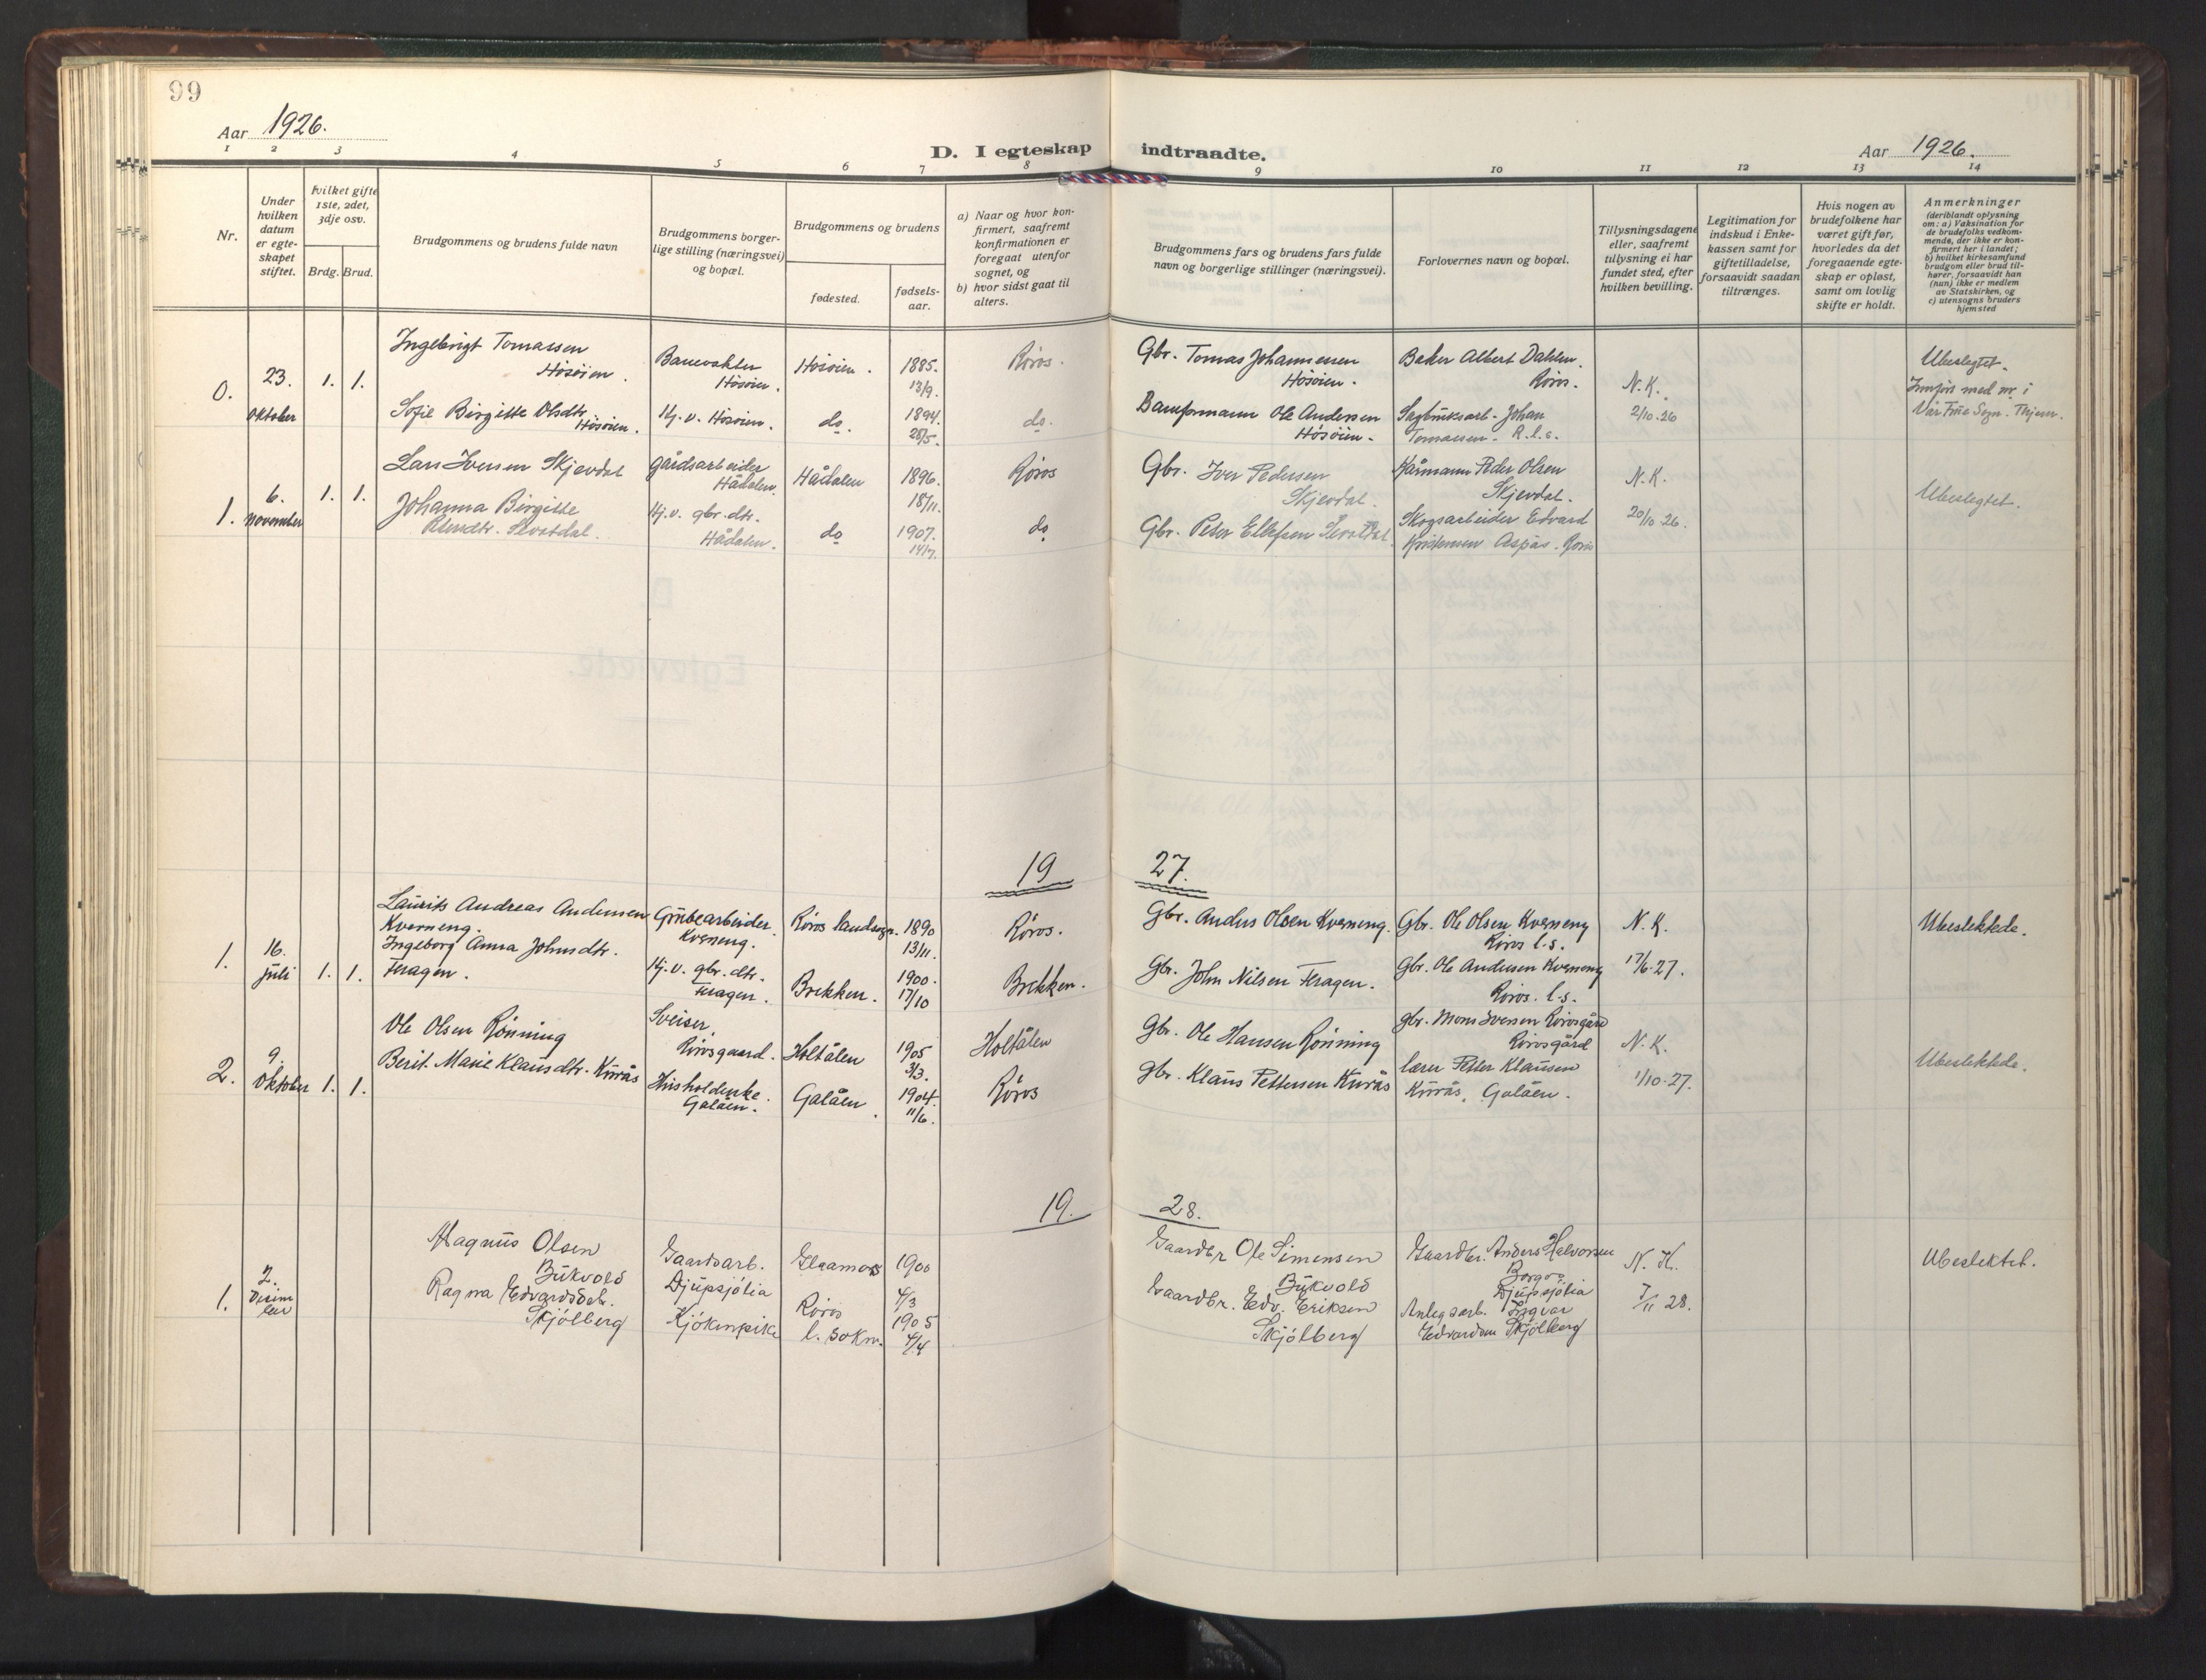 99
Aar 1926.
D. I egteskap indtraadte.
Aar 1926.
1 2 3 4 5 6 7 8 9 10 11 12 13 14
Nr.
Under hvilken datum er egte-skapet stiftet.
hvilket gifte 1ste, 2det, 3dje osv.
Brdg. Brud.
Brudgommens og brudens fulde navn
Brudgommens borger-lige stilling (næringsvei) og bopæl.
Brudgommens og brudens
fødested.
fødsels-aar.
a) Naar og hvor kon-firmert, saafremt konfirmationen er foregaat utenfor sognet, og
b) hvor sidst gaat til alters.
Brudgommens fars og brudens fars fulde navn og borgerlige stillinger (næringsvei).
Forlovernes navn og bopæl.
Tillysningsdagene eller, saafremt tillysning ei har fundet sted, efter hvilken bevilling.
Legitimation for indskud i Enke-kassen samt for giftetilladelse, forsaavidt saadan tiltrænges.
Hvis nogen av brudefolkene har været gift før, hvorledes da det foregaaende egte-skap er opløst, samt om lovlig skifte er holdt.
Anmerkninger
(deriblandt oplysning om: a) Vaksination for de brudefolks vedkom-mende, der ikke er kon-firmert her i landet; b) hvilket kirkesamfund brudgom eller brud til-hører, forsaavidt han (hun) ikke er medlem av Statskirken, og c) utensogns bruders hjemsted
0. 23. oktober 1. 1.
Ingebrigt Tomassen Hósóien.
Banevokter Hósóien.
Hósóien. 1885. 13/9.
Róros.
Gbr. Tomas Johannessen Hósóien.
Baker Albert Dahlen. Róros.
N. K.
2/10.26
Ubeslegtet.
Innført med nr i Vår Frue Sogn. Thjem.
Sofie Birgitte Olsdtr. Hósóien.
Hj. v. Hósóien.
do. 1894. 28/5.
do.
Baneformann Ole Andersen Hósóien.
Sagbruksarb. Johan Tomassen. R.l.s.
1. 6. november 1. 1.
Lars Iversen Skjevdal
gårdsarbeider Hådalen.
Hådalen 1896. 18/11.
Róros
Gbr. Iver Pedersen Skjevdal.
Kårmann Peder Olsen Skjevdal.
N. K.
20/10 26.
Ubeslegtet.
Johanna Birgitte
Hj. v. gbr. dtr. Hådalen.
do 1907. 14/7.
do
Gbr. Peter Ellefsen
Skogsarbeider Edvard Kristensen Aspås. Róros
19 27.
1. 16. juli 1. 1.
Laurits Andreas Andersen Kverneng.
Grubearbeider. Kverneng.
Róros landsogn. 1890 13/11.
Róros.
Gbr. Anders Olsen Kverneng.
Gbr. Ole Olsen Kverneng Róros l.s.
N. K.
17/6.27.
Ubeslektede.
Ingeborg Anna Johnsdtr. Feragen.
Hj. v. gbr. dtr. Feragen.
Brekken. 1900. 17/10
Brekken.
Gbr. John Nilsen Feragen.
Gbr. Ole Andersen Kverneng Róros. l.s.
2. 9. oktober 1. 1.
Ole Olsen Rónning
Sveiser. Rórosgaard.
Holtålen 1905 3/3.
Holtålen
Gbr. Ole Hansen Rónning
gbr. Mons Iversen Rórosgård Rórosgård
N. K.
1/10.27.
Ubeslektede.
Berit Marie Klausdtr. Kurås
Husholderske. Galåen.
Galåen. 1904. 11/6.
Róros
gbr. Klaus Pettersen Kurås
lærer Petter Klausen Kurås, Galåen.
19. 28.
1. 2. Desember
Magnus Olsen Bukvold
Gaardsarb. Djupsjólia
Glaamos 1900 4/3
Gaardbr Ole Simensen Bukvold
Gaardbr. Anders Halvorsen Borgos Djupsjólia
N. K.
7/11 28.
Ubeslektet.
Ragna Edvardsdtr. Skjólberg
Kjókenpike
Róros l. sokn. 1905 4/4
Gaardbr. Edv. Eriksen Skjólberg
Anlegsarb. Ingvar Edvardsen Skjólberg